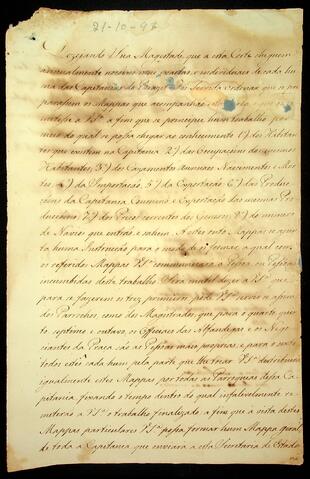 21-10-97
Dezejando Sua Magestade que a esta Corte cheguem
annualmente noticias mais exactas, e individuaes de cada hu
ma das Capitanias do Brazil: Foi Servida ordenar que se
Mappas que acompanhão
a fim que se principie hum trabalho, por
meio do qual se possa chegar ao conhecimento 1º) dos Habitan
tes que existem na Capitania 2º) das Occupaçoens dos mesmos
Habitantes, 3º) dos Cazamentos annuaes, Nascimentos e Mor
tes, 4º) da Importação, 5º) da Exportação 6º) das Produc
çoens da Capitania, Consumo, e Exportação das mesmas Pro
ducçoens, 7º) dos Preços correntes dos Generos, 8º) do numero
de Navios que entrão e sahem. A estes oito Mappas se ajun
ta huma Instrucção para o modo de os formar, a qual com
os referidos Mappas V.S.ª communicará a Pessoa ou Pessoas
incumbidas deste trabalho. Será inutil dizer a V.S.ª que
para se fazerem os tres primeiros, pode V.S.ª servir-se assim
dos Parrochos, como dos Magistrados, que para o quarto, quin
to, septimo, e outavo os Officiaes das Alfandegas e os Nego
ciantes da Praça são as Pessoas mais proprias, e para o sexto
todos estes cada hum pela parte que lhe tocar. V.S.ª destribuirá
igualmente estes Mappas por todas as Parroquias dessa Ca
pitania, fixando o tempo dentro do qual infalivelmente re
meterão a V.S.ª o trabalho finalizado a fim que á vista destes
Mappas particulares V.S.ª possa formar hum Mappa geral
de toda a Capitania que enviará a esta Secretaria de Estado